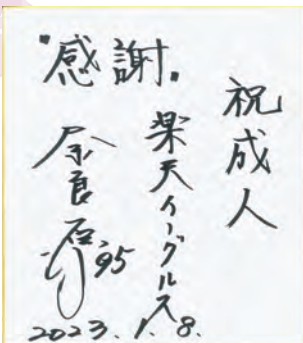 "感謝"
祝成人
楽天イーグルス
奈良原 浩 95
2023.1.8.